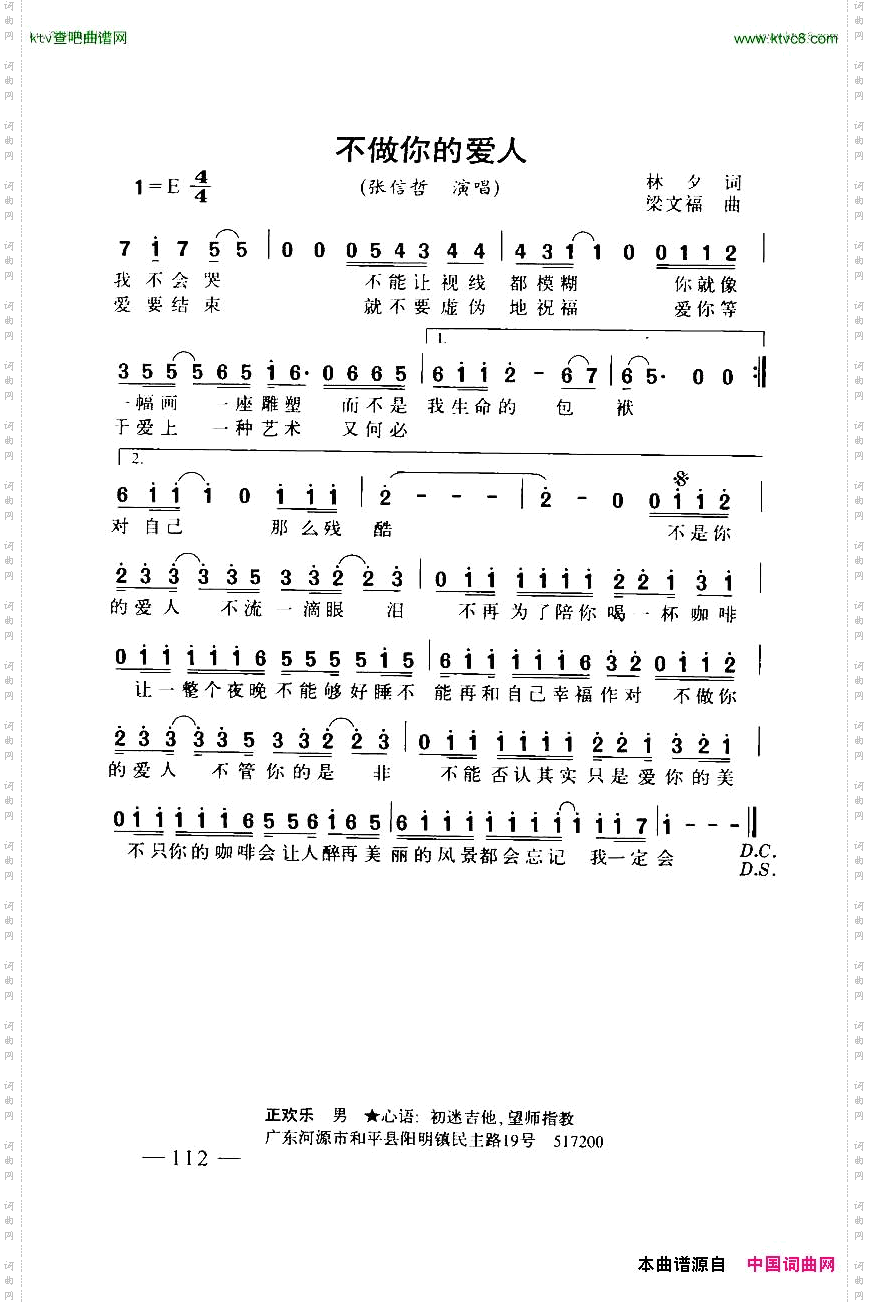 ktv查吧曲谱网 www.ktvc8.com
不做你的爱人
1=E 4/4 (张信哲 演唱) 林夕 词
梁文福 曲
7 1 7 5 5 | 0 0 0 5 4 3 4 4 | 4 3 1 1 0 0 1 1 2 |
我不会哭 不能让视线 都模糊 你就像
爱要结束 就不要虚伪 地祝福 爱你等
1.
3 5 5 5 6 5 1 6· 0 6 6 5 | 6 1 1 2 - 6 7 | 6 5· 0 0 :||
一幅画 一座雕塑 而不是 我生命的 包 袱
于爱上 一种艺术 又何必
2.
6 1 1 1 0 1 1 1 | 2 - - - | 2 - 0 0 1 1 2 |
对自己 那么残 酷 不是你
2 3 3 3 3 5 3 3 2 2 3 | 0 1 1 1 1 1 1 2 2 1 3 1 |
的爱人 不流一滴眼 泪 不再为了陪你喝一杯咖啡
0 1 1 1 1 1 6 5 5 5 5 1 5 | 6 1 1 1 1 1 6 3 2 0 1 1 2 |
让一整个夜晚不能够好睡不 能再和自己幸福作对 不做你
2 3 3 3 3 5 3 3 2 2 3 | 0 1 1 1 1 1 1 2 2 1 3 2 1 |
的爱人 不管你的是 非 不能否认其实只是爱你的美
0 1 1 1 1 1 6 5 5 6 1 6 5 | 6 1 1 1 1 1 1 1 1 1 1 7 | 1 - - - ||
不只你的咖啡会让人醉再美 丽的风景都会忘记 我一定会 D.C.
D.S.
正欢乐 男 ★心语: 初迷吉他,望师指教
广东河源市和平县阳明镇民主路19号 517200
— 112 —
本曲谱源自 中国词曲网